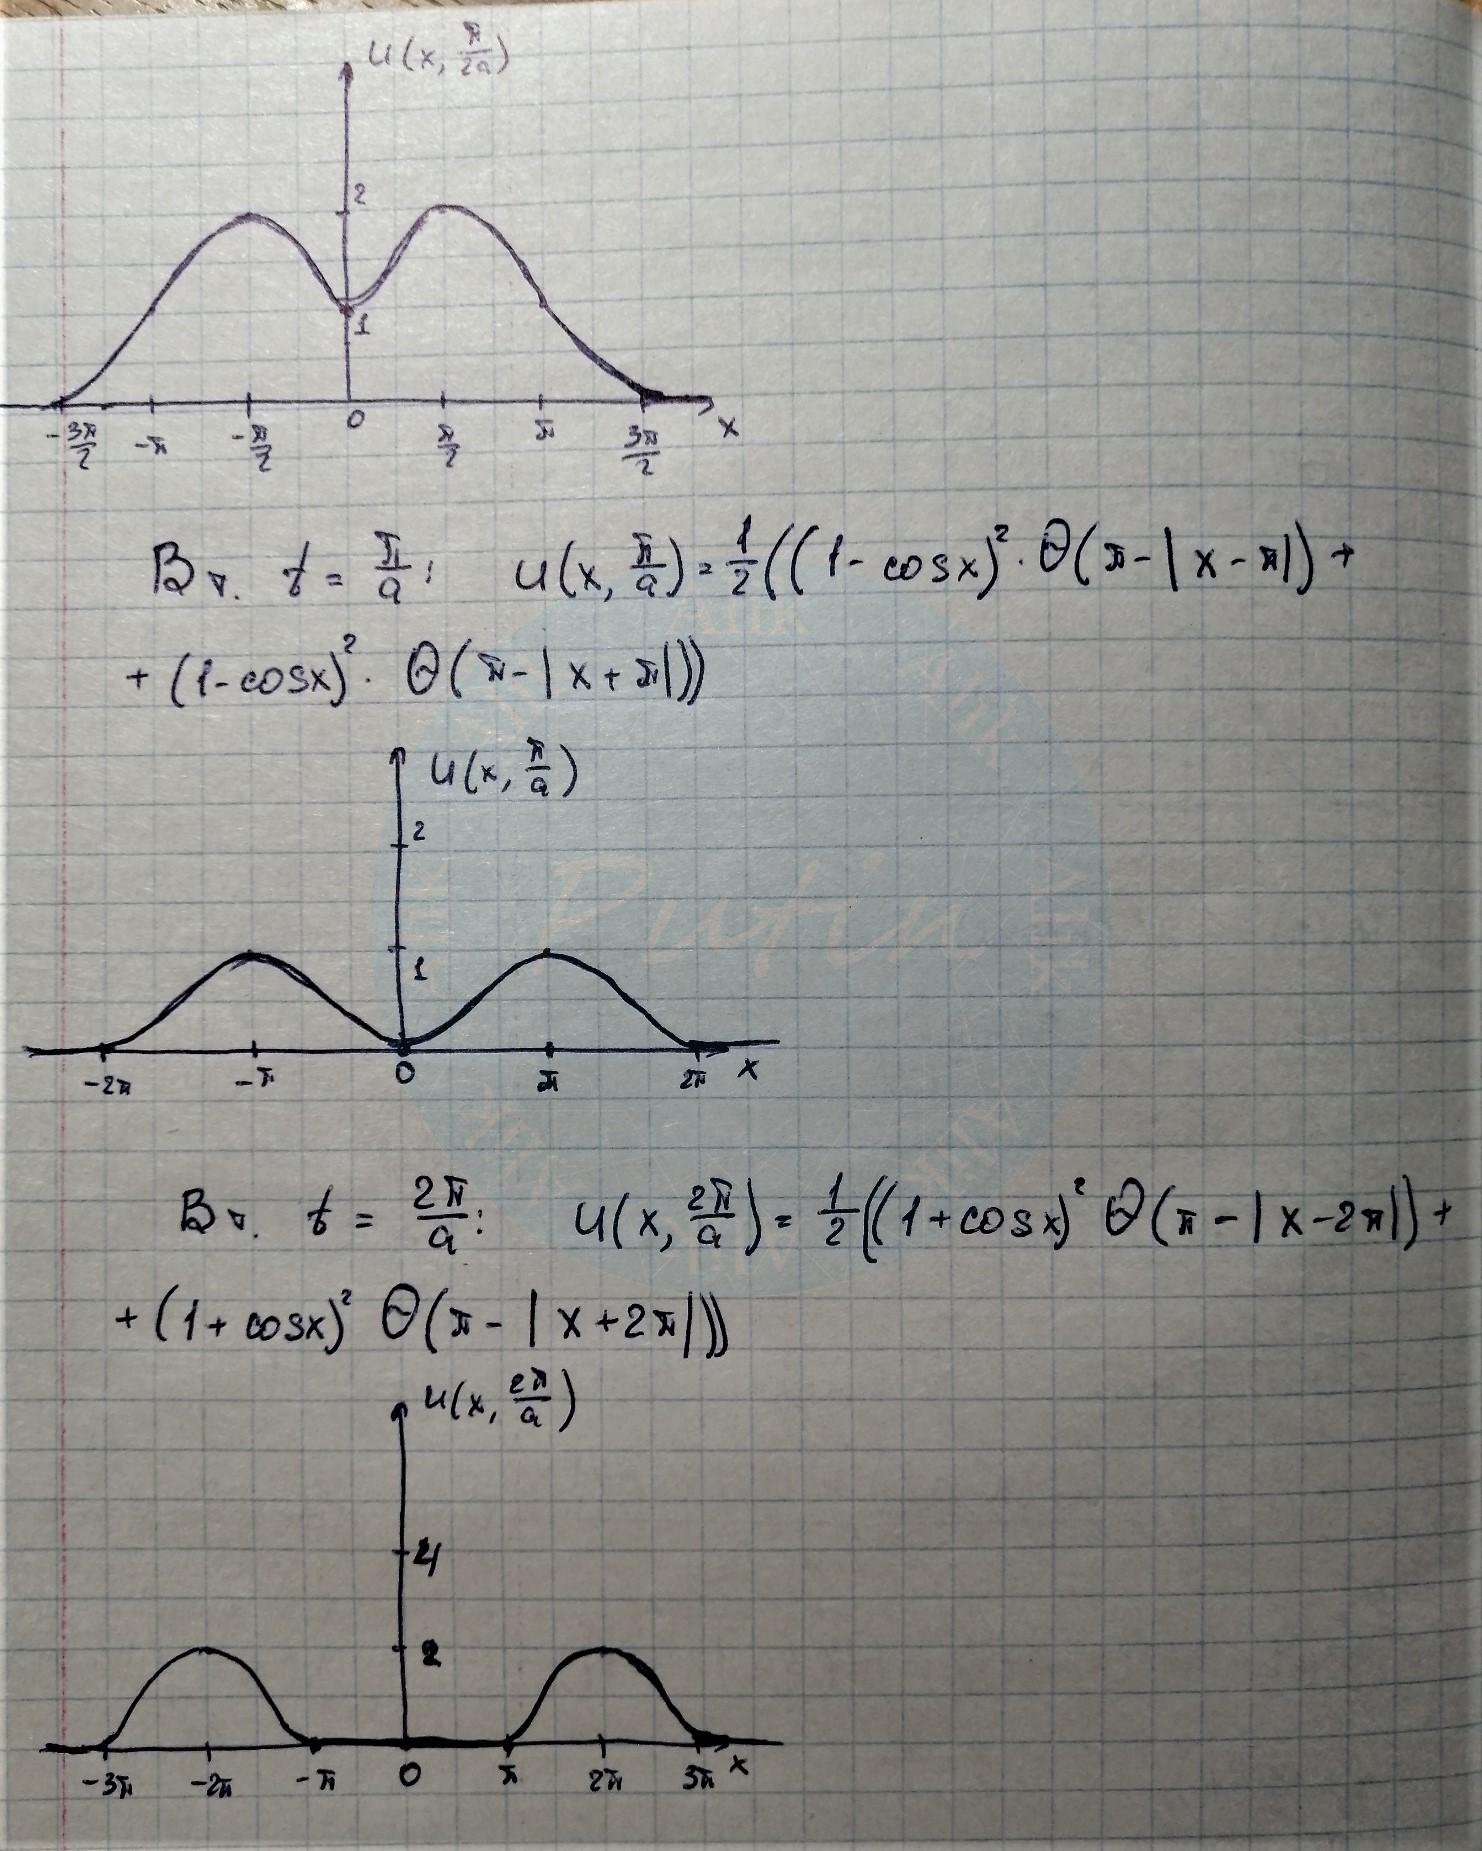 u(x, π/2a)
2
1
-3π/2 -π -π/2 0 π/2 π 3π/2 x
В т. t = π/a: u(x, π/a) = 1/2((1-cosx)²·Θ(π-|x-π|)+
+(1-cosx)²· Θ(π-|x+π|))
u(x, π/a)
2
1
-2π -π 0 π 2π x
Putin
В т. t = 2π/a: u(x, 2π/a) = 1/2((1+cosx)² Θ(π-|x-2π|)+
+(1+cosx)² Θ(π-|x+2π|))
u(x, 2π/a)
4
2
-3π -2π -π 0 π 2π 3π x